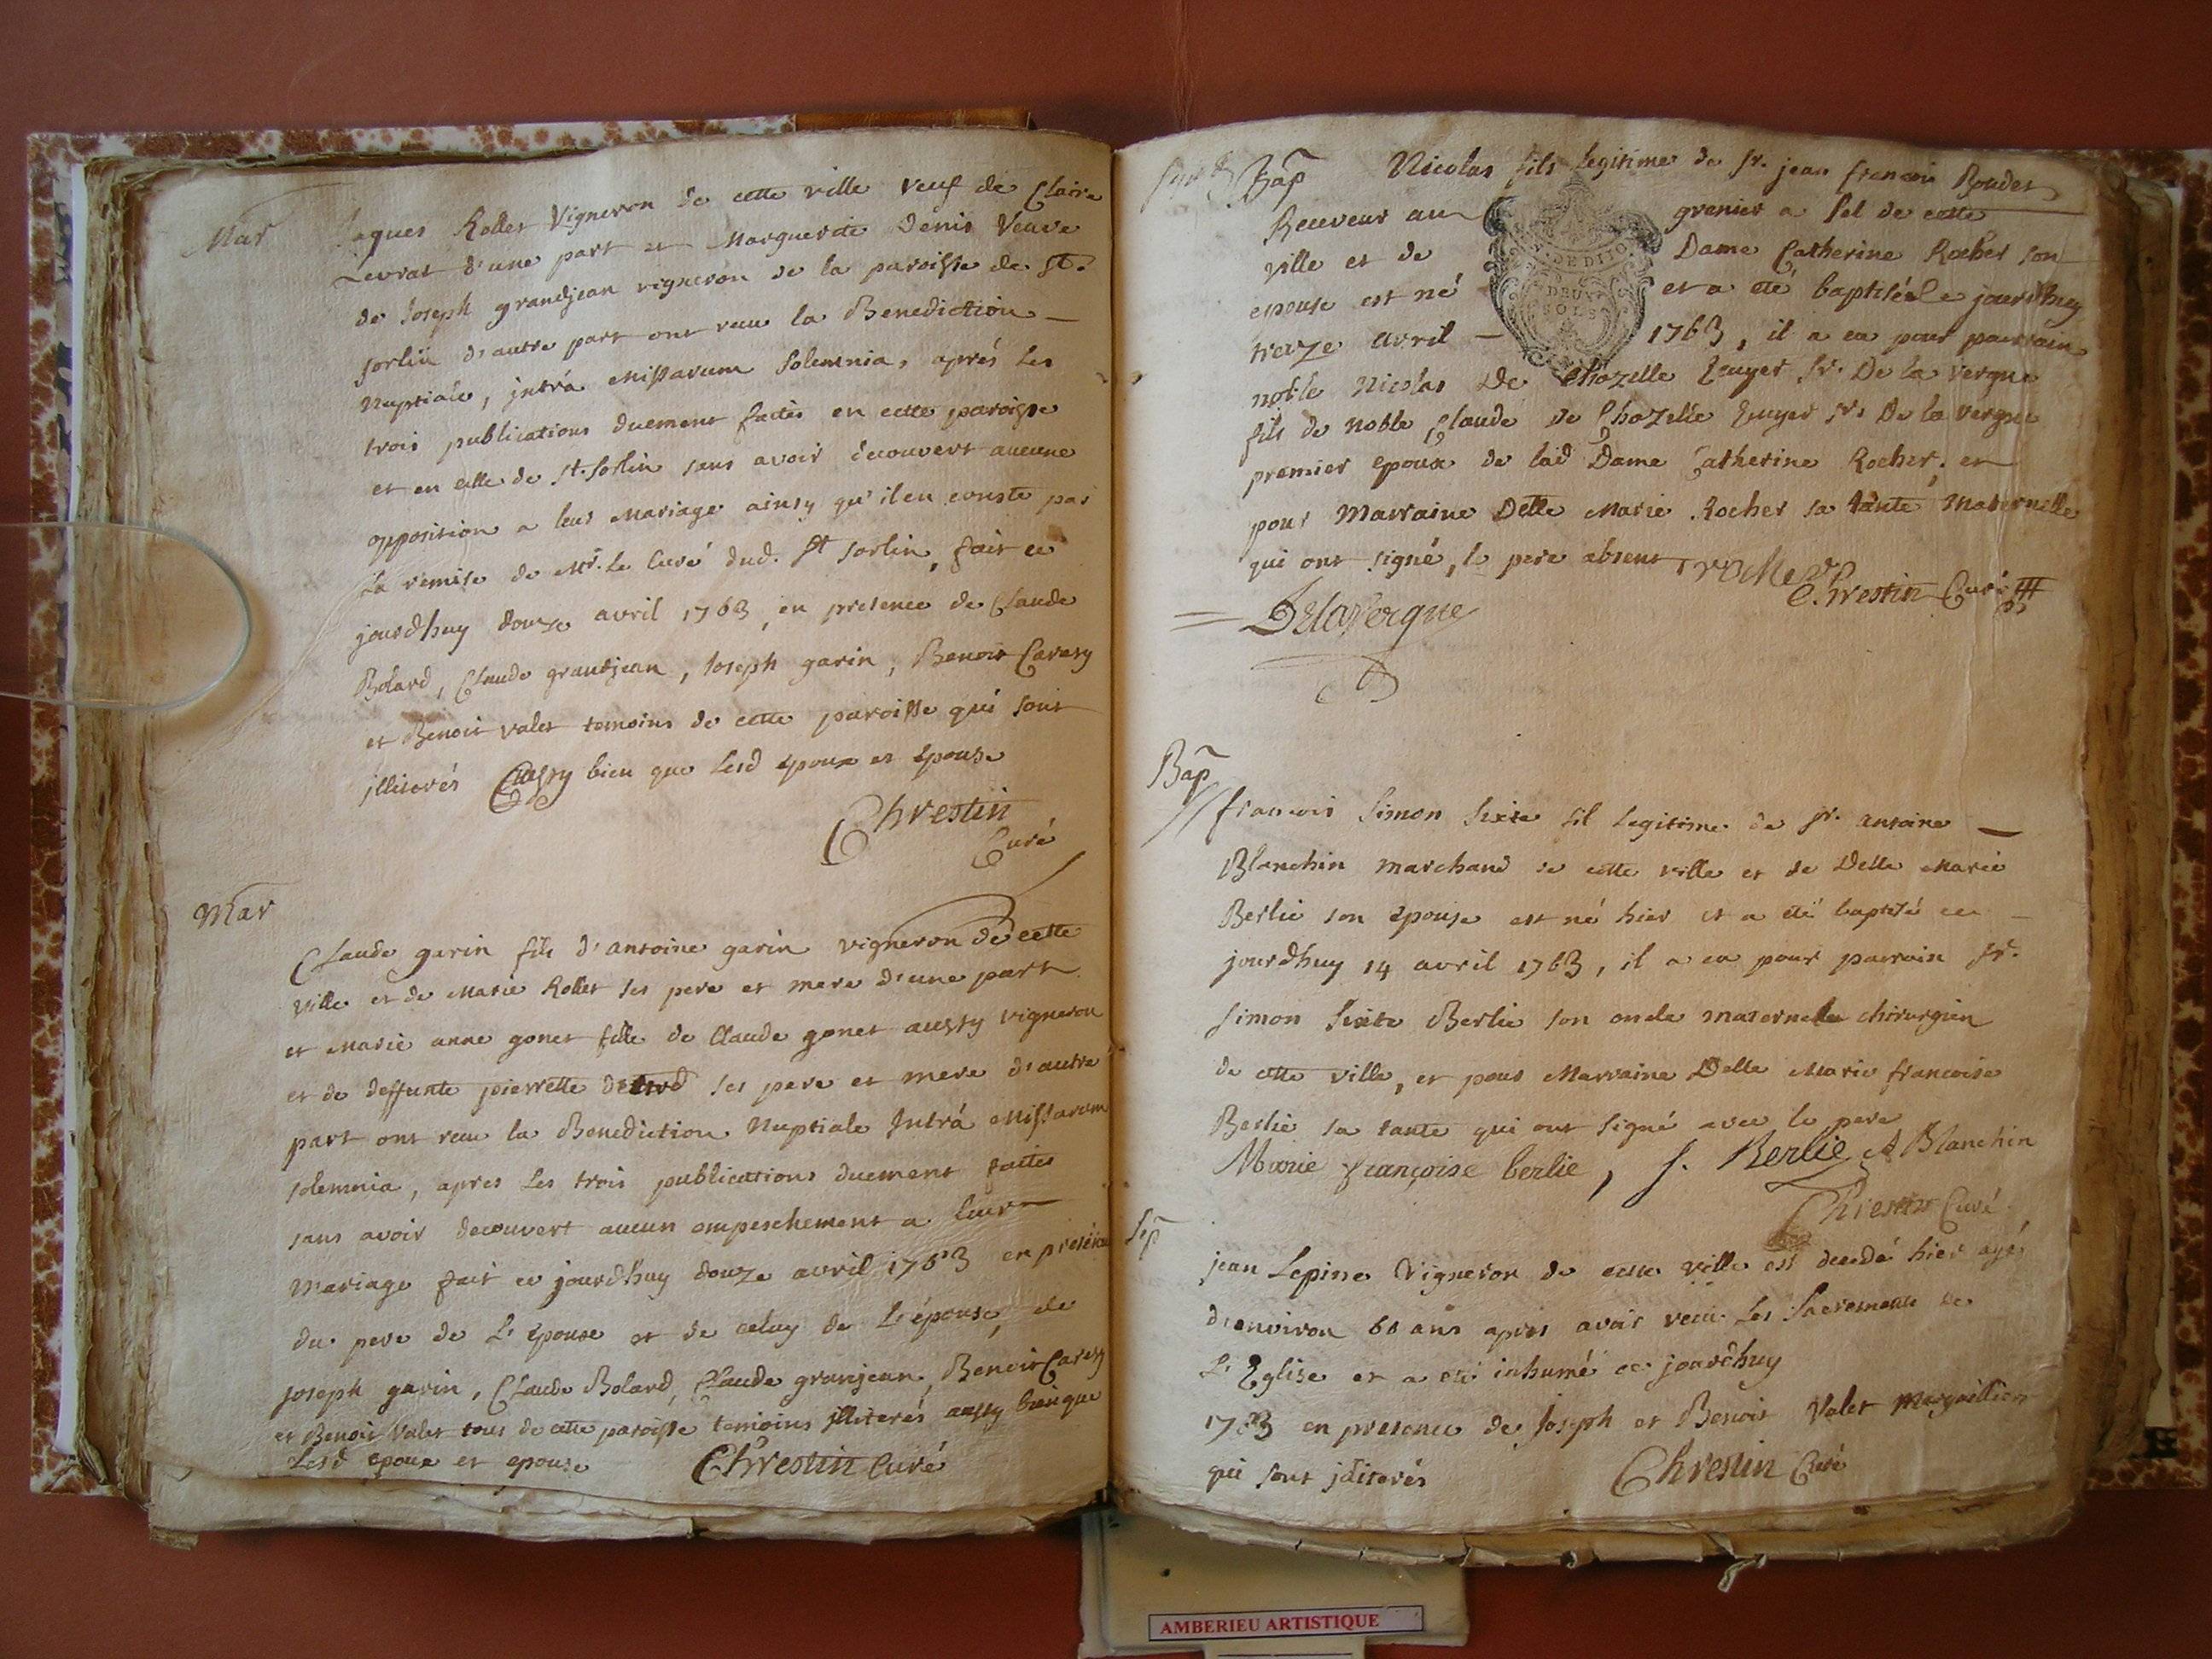 Mar
Jaques Rollet Vigneron de cette ville veuf de Claire
Levrat d'une part et Marguerite Denis Veuve
de Joseph grandjean vigneron de la paroisse de St.
sorlin d'autre part ont recu la Benediction
Nuptiale, jntrá Missarum Solemnia, aprés Les
trois publications duement faites en cette paroisse
et en celle de St. sorlin sans avoir decouvert aucune
opposition a leur Mariage ainsy qu'il en conste par
La remise de Mr. Le Curé dud. St sorlin, fait ce
jourdhuy douze avril 1763, en presence de Claude
Bolard, Claude grandjean, Joseph garin, Benoit Caresy
et Benoit valet temoins de cette paroisse qui sont
jlliterés Aussy bien que Lesd epoux et Epouse
Chrestin
Curé
Mar
Claude garin fils d'antoine garin vigneron de cette
ville et de Marie Rollet ses pere et mere d'une part
et Marie anne gonet fille de Claude gonet aussy vigneron
et de deffunte pierrette ses pere et mere d'autre
part ont recu la Benediction Nuptiale Jntrá Missarum
solemnia, apres Les trois publications duement faites
sans avoir decouvert aucun empeschement a leur
Mariage fait ce jourdhuy douze avril 1763 en presence
du pere de L'Epoux et de celuy de L'épouse, de
joseph garin, Claude Bolard, Claude granjean, Benoit Caresy
et Benoit Valet tous de cette paroisse temoins jlliterés aussy bien que
Lesd epoux et epouse Chrestin Curé
Bap
Nicolas fils legitime de sr. jean francois Boudet
Receveur au grenier a sel de cette
ville et de Dame Catherine Rocher son
epouse est né et a eté baptisé ce jourdhuy
treize avril 1763, il a eu pour parrain
noble Nicolas De Chazelle Ecuyer sr. De la vergne
fils de noble Claude de Chazelle Ecuyer sr. De la vergne
premier epoux de lad Dame Catherine Rocher, et
pour Marraine Delle Marie Rocher sa tante Maternelle
qui ont signé, le pere absent, rocher
Chrestin Curé
Delavergne
DE DIJO
DEUX
SOLS
Bap
francois Simon Sixte fil Legitime de sr. antoine
Blanchin marchand de cette ville et de Delle Marie
Berlie son épouse est né hier et a eté baptisé ce
jourdhuy 14 avril 1763, il a eu pour parrain sr.
simon Sixte Berlie son oncle maternel chirurgien
de cette ville, et pour Marraine Delle Marie francoise
Berlie sa tante qui ont signé avec le pere
Marie françoise berlie, s. Berlie A Blanchin
Chrestin Curé
Sep
jean Lepine Vigneron de cette ville est decedé hier agé
d'environ 60 ans apres avoir recu Les Sacrements de
L'Eglise et a eté inhumé ce jourdhuy
1763 en presence de Joseph et Benoit Valet Marguilliers
qui sont jlliterés Chrestin Curé
AMBERIEU ARTISTIQUE